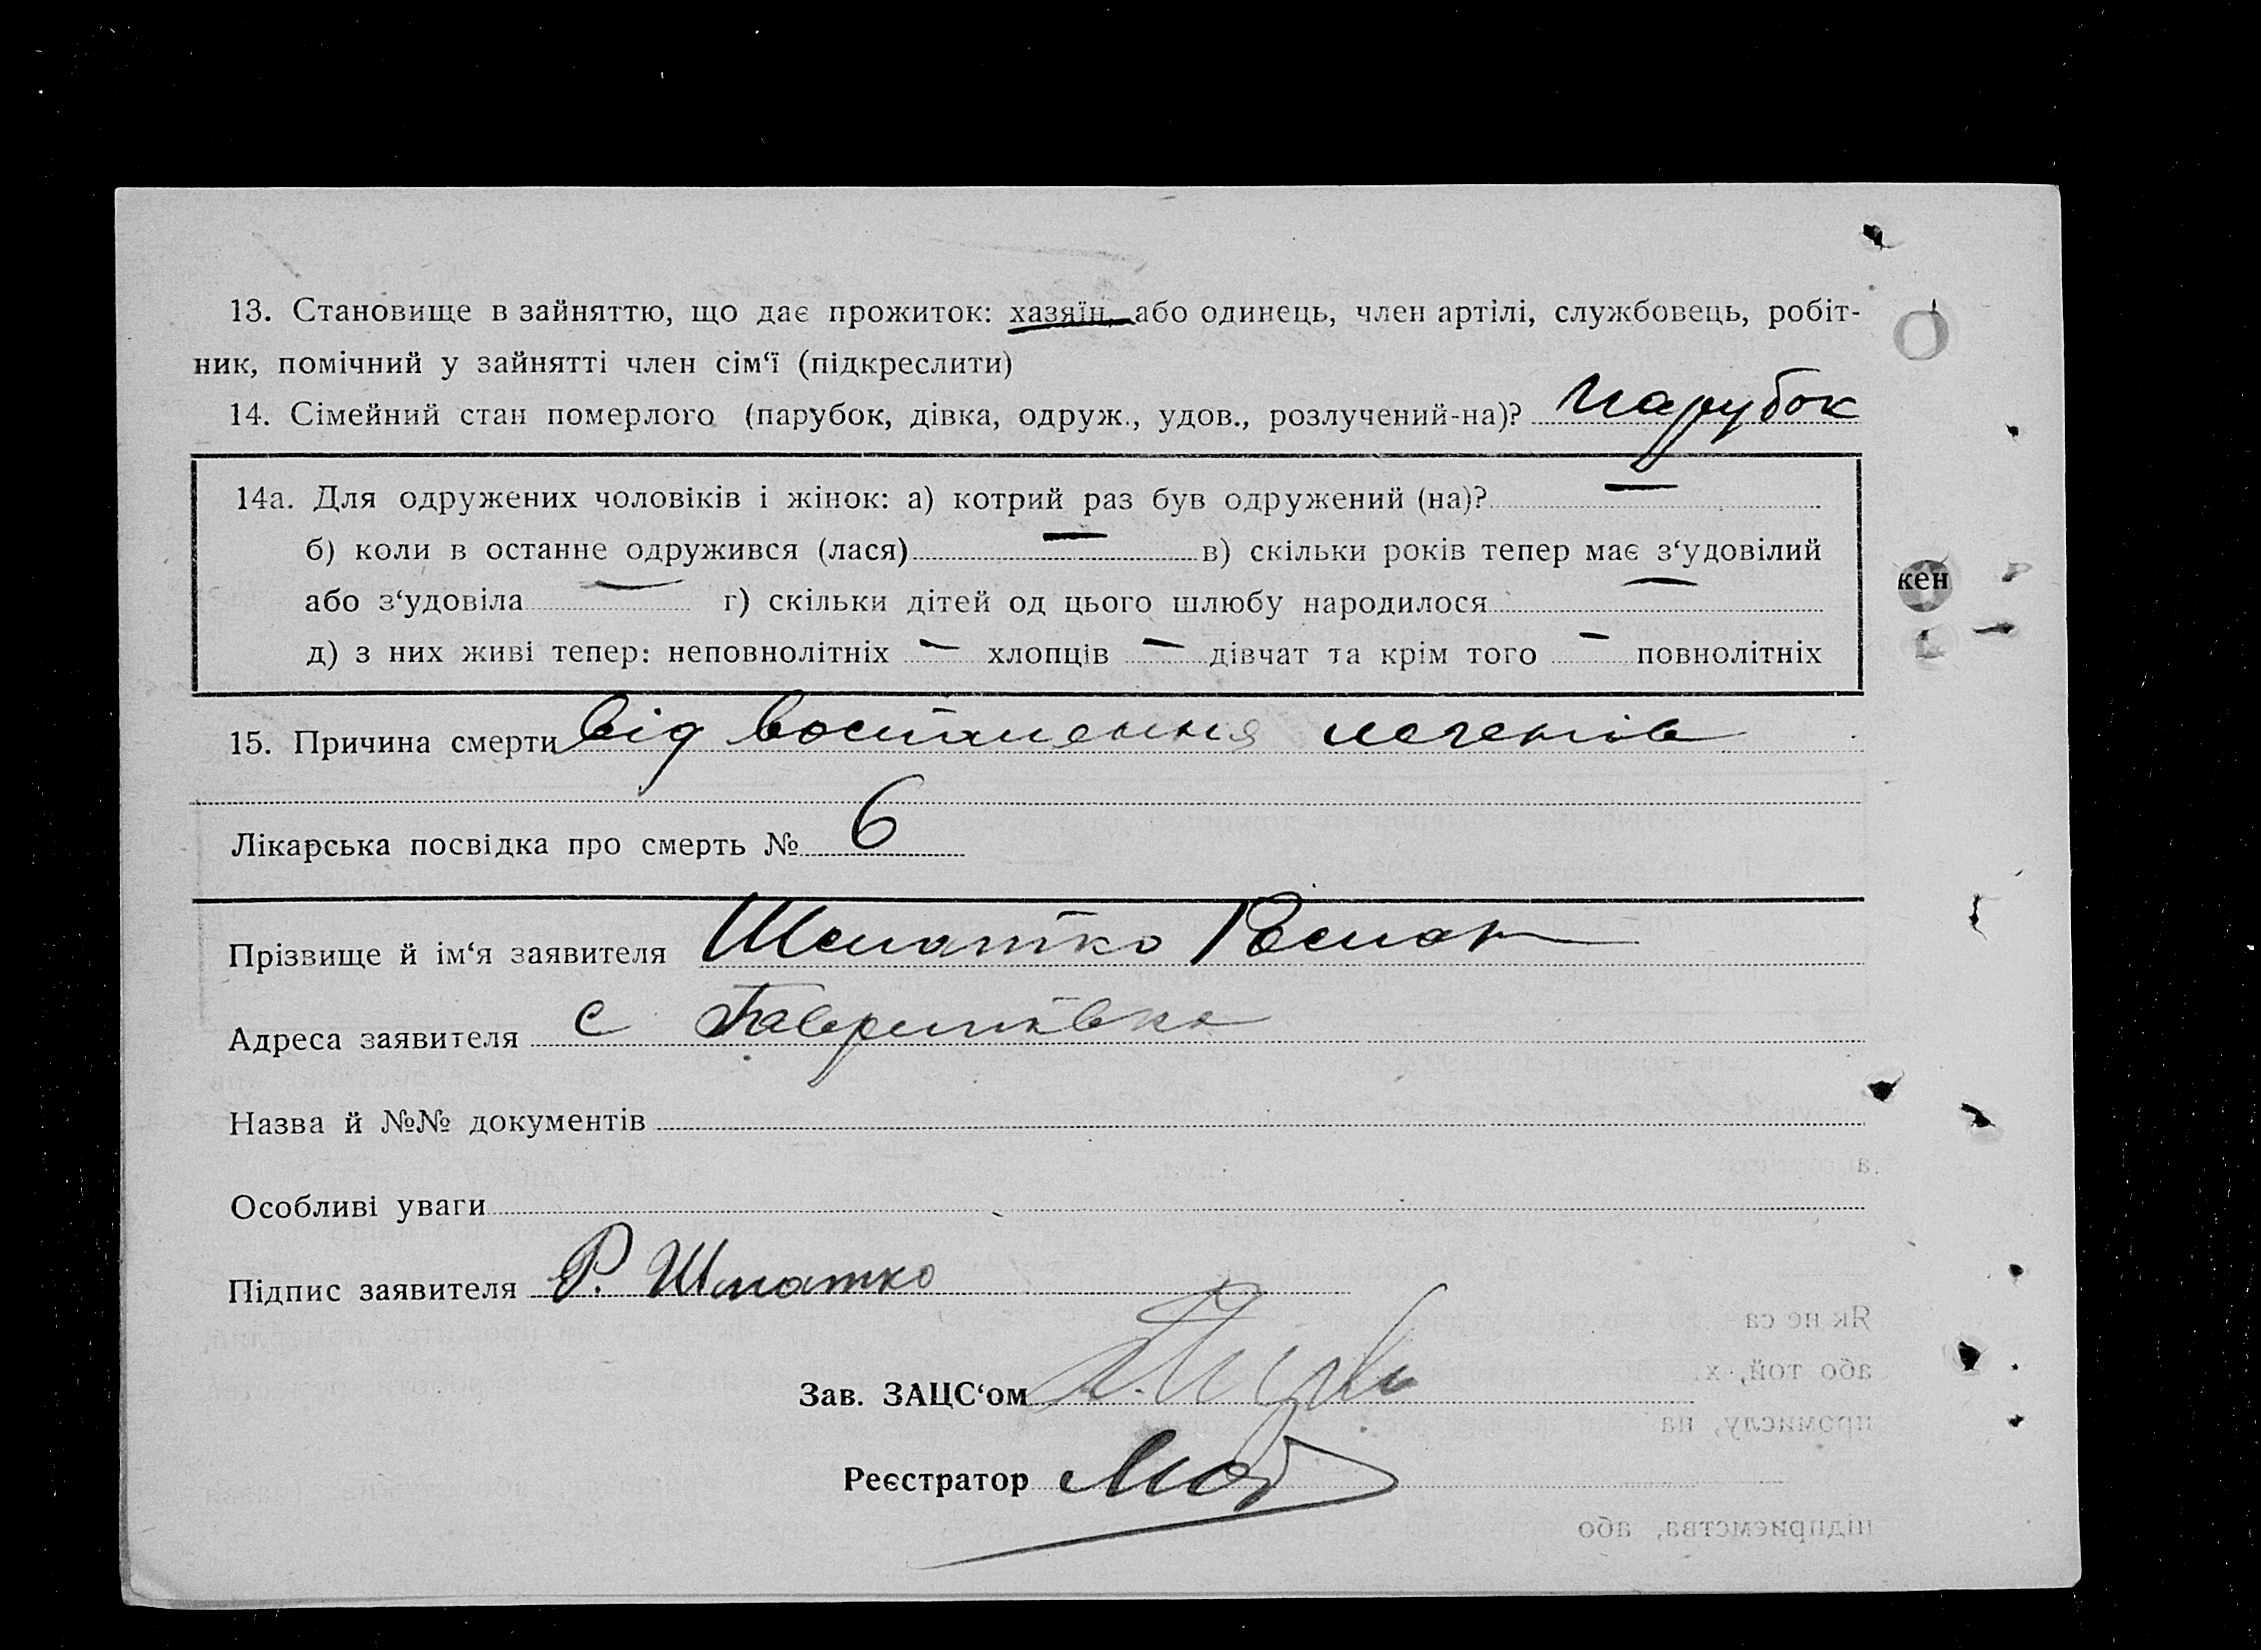 13. Становище в зайняттю, що дає прожиток: хазяїн, або одинець, член артілі, службовець, робіт-
ник, помічний у зайнятті член сім‘ї (підкреслити)
14. Сімейний стан померлого (парубок, дівка, одруж., удов., розлучений-на)? Парубок
14а. Для одружених чоловіків і жінок: а) котрий раз був одружений (на)? —
б) коли в останне одружився (лася) — в) скільки років тепер має з‘удовілий
або з‘удовіла — г) скільки дітей од цього шлюбу народилося —
д) з них живі тепер: неповнолітніх — хлопців — дівчат та крім того — повнолітніх
15. Причина смерти від воспалення легенів
Лікарська посвідка про смерть № 6
Прізвище й ім‘я заявителя Шматко Роман
Адреса заявителя с Гавришівка
Назва й №№ документів
Особливі уваги
Підпис заявителя Р. Шматко
Зав. ЗАЦС‘ом
Реєстратор
кен
Як не са
або той, х
промислу, на
підприємства, або